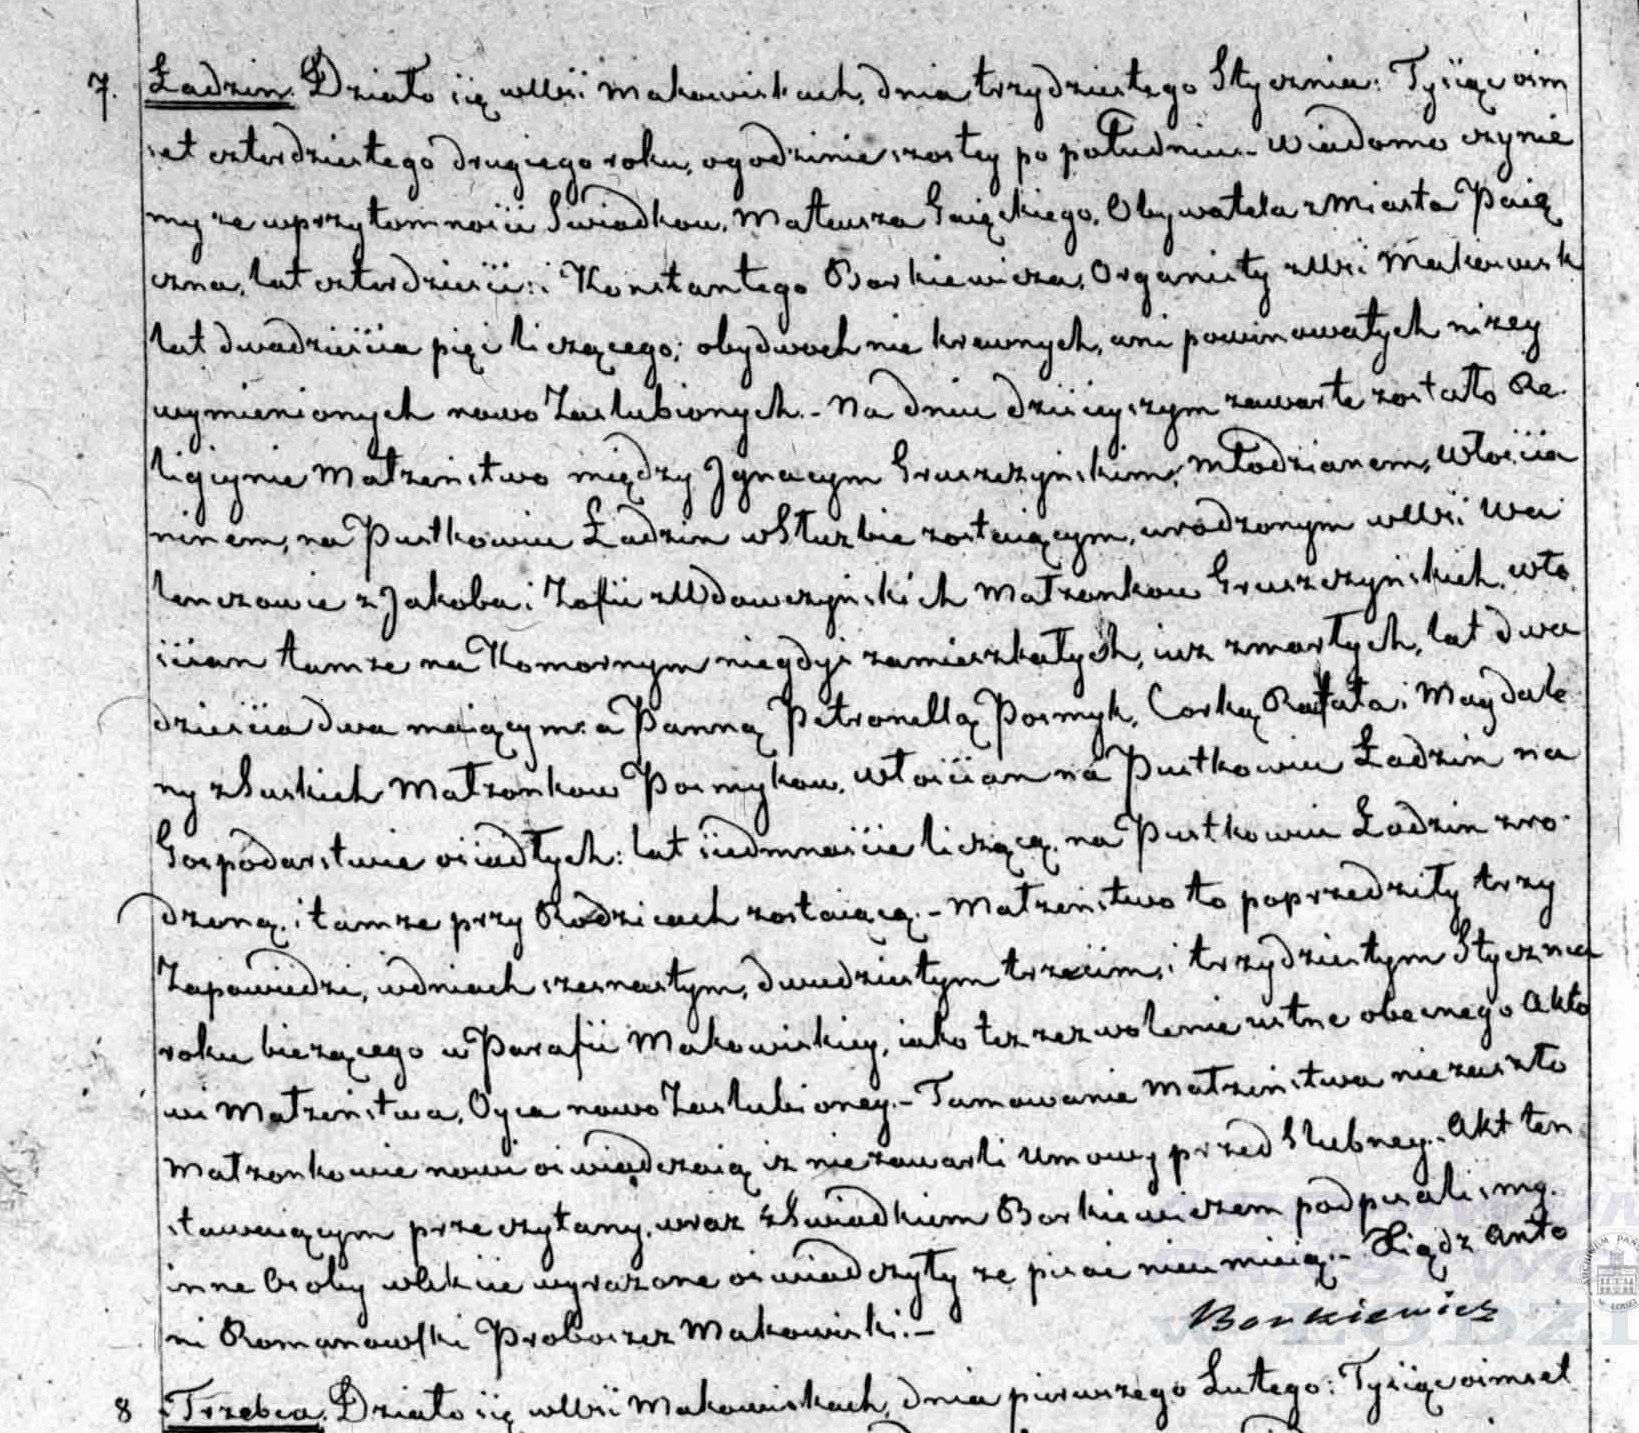 7. Ładzin. Działo się wWsi Makowiskach, dnia trzydziestego Stycznia: Tysiąc ośm
set czterdziestego drugiego roku, ogodzinie szostey po południu.- Wiadomo czynie
my ze wprzytomności Swiadkow, Mateusza Gaięckiego, Obywatela z Miasta Paię
czna, lat czterdzieści: i Konstantego Borkiewicza, Organisty zWsi Makowisk
lat dwadzieścia pięć liczącego; obydwoch nie krewnych, ani powinowatych nizey
wymienionych nowo Zaslubionych.- Na dniu dzisieyszym zawarte zostało Re-
ligiynie Małzeństwo między Jgnacym Gruszczyńskim, Młodzianem, Włościa
ninem, na Pustkowiu Ładzin wSłuzbie zostaiącym, urodzonym wWsi Wa
lenczowie z Jakoba i Zofii zWdowczyńskich Małzonkow Gruszczyńskich, wło
ścian tamze na Komornym niegdyś zamieszkałych, iuz zmarłych, lat dwa
dzieścia dwa maiącym: a Panną Petronellą Posmyk, Corką Rafała i Magdale
ny zSuskich Małzonkow Posmykow, włościan na Pustkowiu Ładzin na
Gospodarstwie osiadłych: lat siedmnaście liczącą, na Pustkowiu Ładzin zro-
dzoną, i tamze przy Rodzicach zostaiącą.- Małzeństwo to poprzedziły trzy
Zapowiedzi, wdniach szesnastym, dwudziestym trzecim, i trzydziestym Stycznia
roku biezącego w Parafii Makowiskiey, iako tez zezwolenie ustne obecnego Akto
wi Małzeństwa, Oyca nowo Zaslubioney.- Tamowanie Małzeństwa niezaszło
Małzonkowie nowi oświadczaią iz niezawarli Umowy przed Slubney.- Akt ten
stawaiącym przeczytany, wraz zSwiadkiem Borkiewiczem podpisaliśmy.
inne Osoby wAkcie wyrazone oswiadczyły ze pisać nieumieią.- Xiądz Anto
ni Romanowski Proboszcz Makowiski.-
Borkiewicz
8 Trzebca. Działo się wWsi Makowiskach, dnia pierwszego Lutego: Tysiąc ośmset